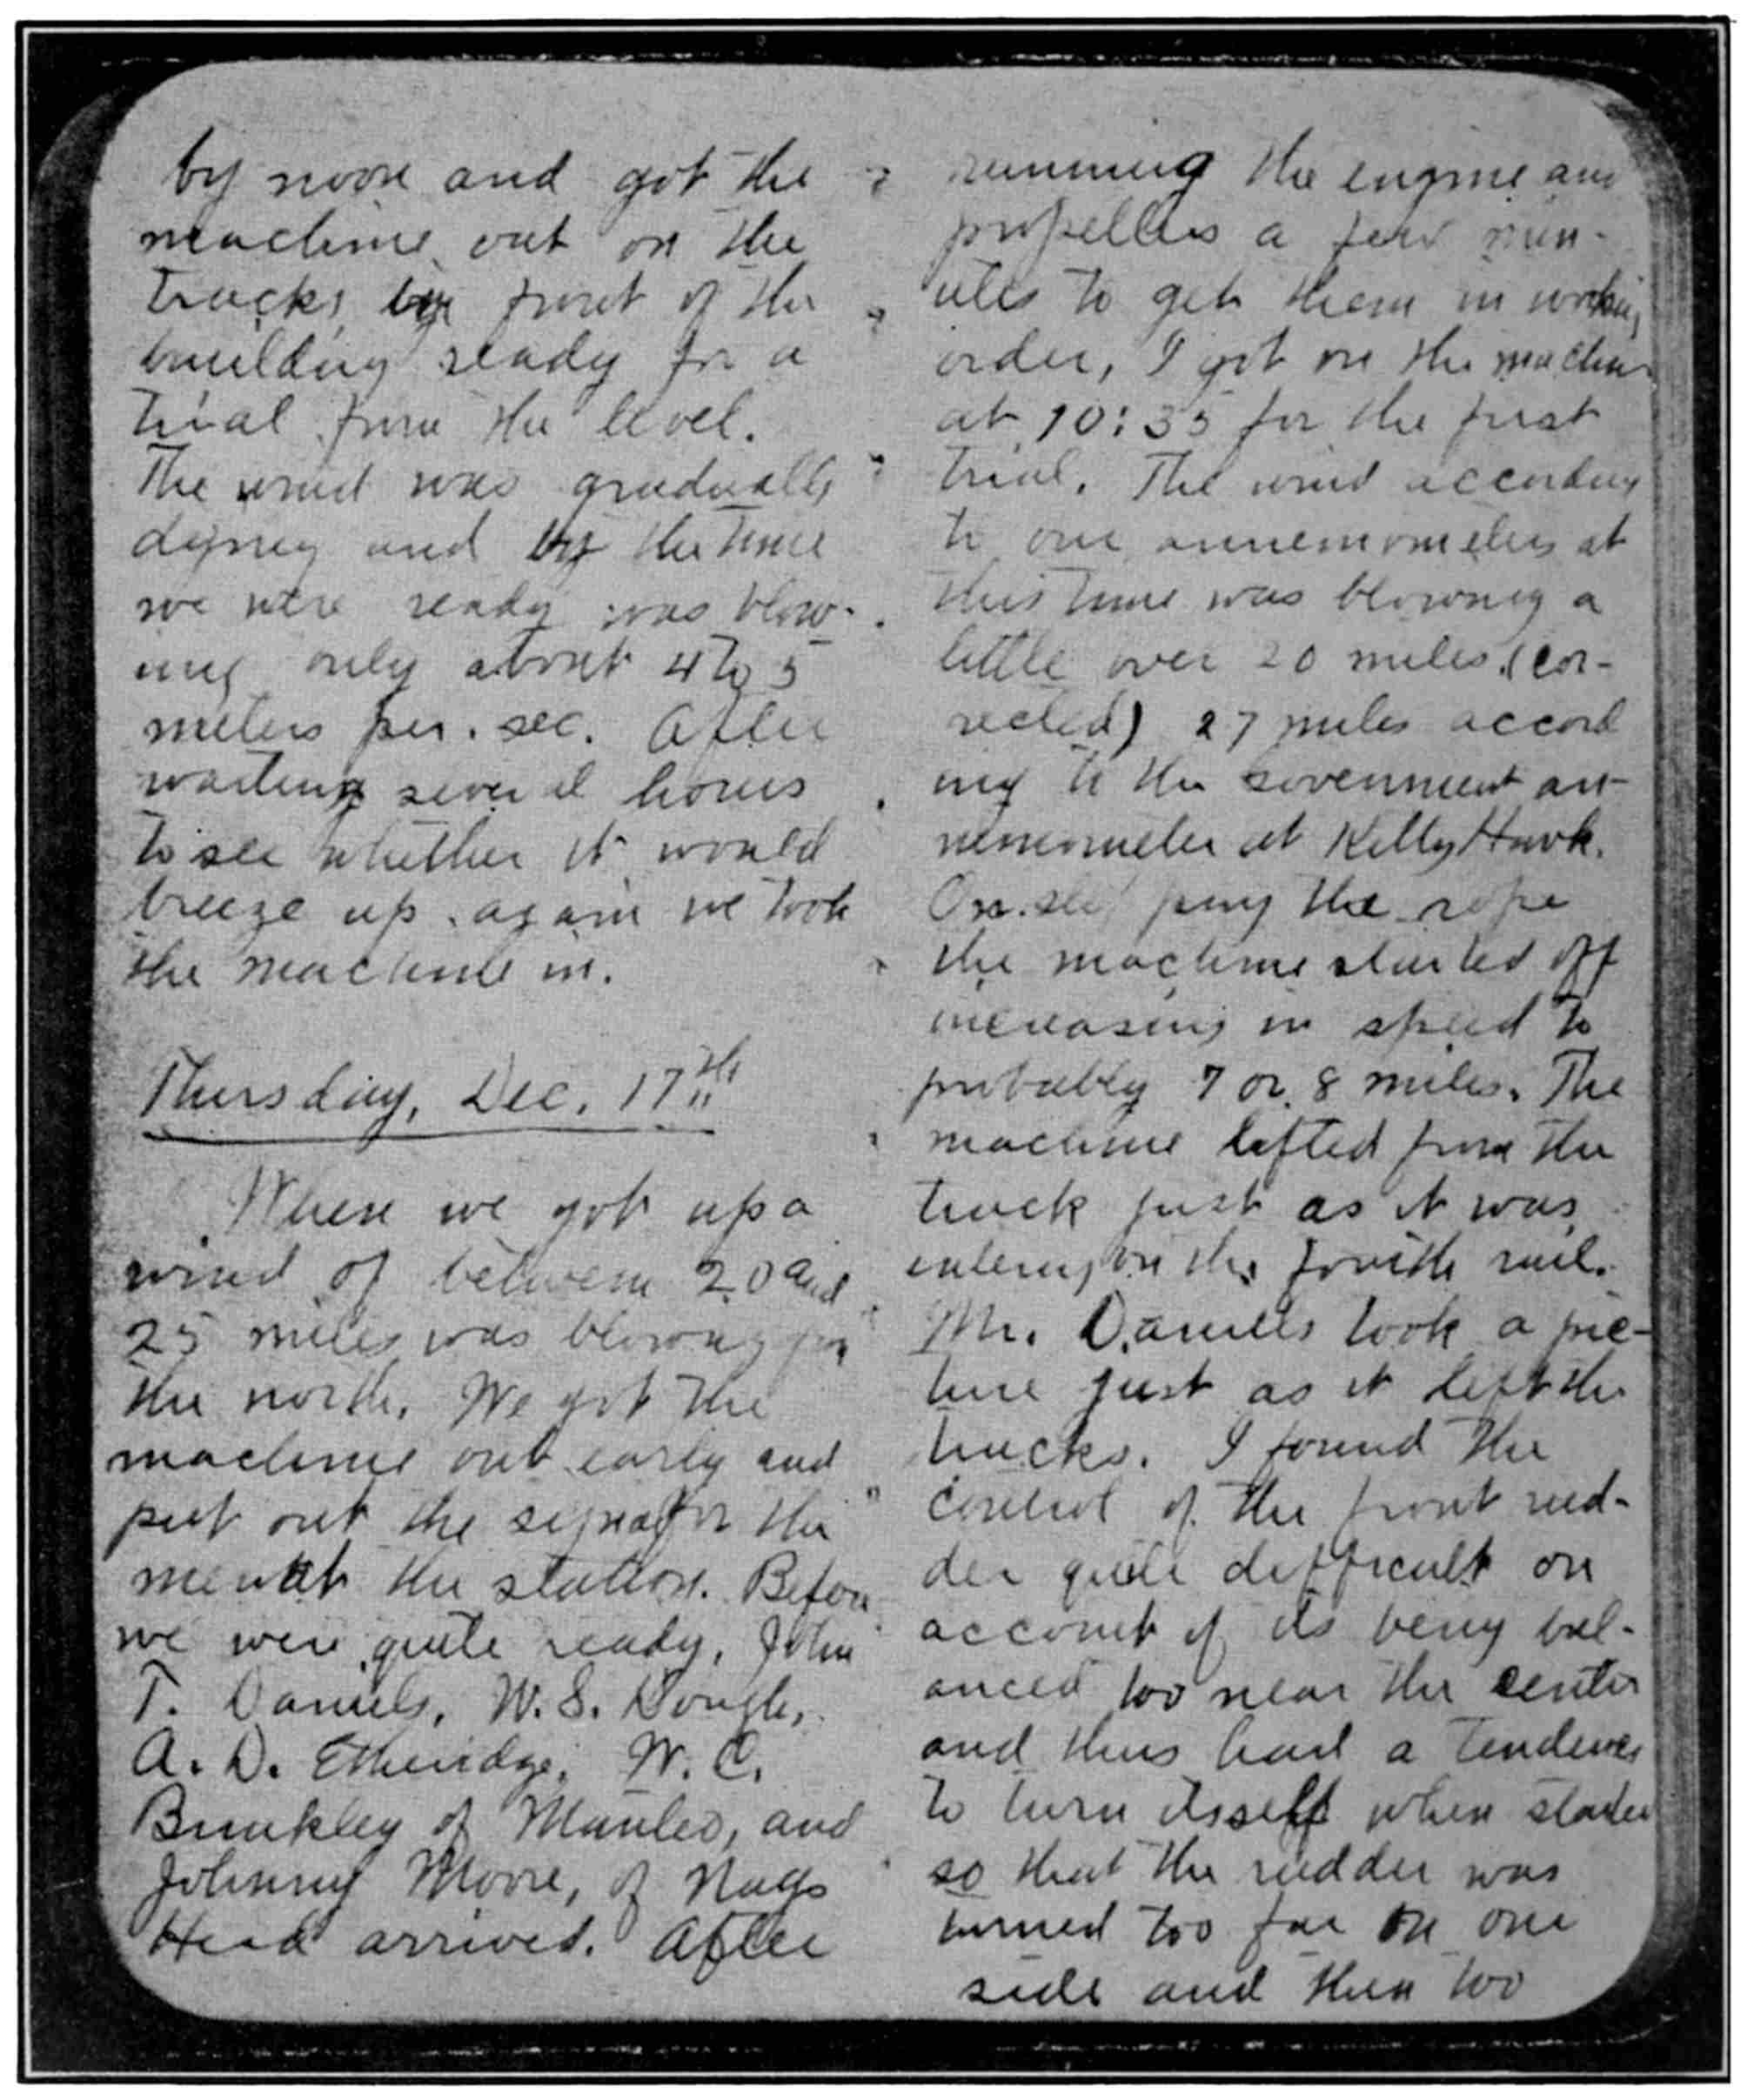 by noon and got the
machine out on the
tracks in front of the
building ready for a
trial from the level.
The wind was gradually
dying and by the time
we were ready was blow-
ing only about 4 to 5
meters per. sec. After
waiting several hours
to see whether it would
breeze up again we took
the machine in.
Thursday, Dec. 17th
When we got up a
wind of between 20 and
25 miles was blowing from
the north. We got the
machine out early and
put out the signal for the
men at the station. Before
we were quite ready, John
T. Daniels, W. S. Dough,
A. D. Etheridge, W. C.
Brinkley of Manteo, and
Johnny Moore, of Nags
Head arrived. After
running the engine and
propellers a few min-
utes to get them in working
order, I got on the machine
at 10:35 for the first
trial. The wind according
to our annemometers at
this time was blowing a
little over 20 miles (cor-
rected) 27 miles accord
ing to the Government an-
nemometer at Kitty Hawk.
On slipping the rope
the machine started off
increasing in speed to
probably 7 or 8 miles. The
machine lifted from the
truck just as it was
entering on the fourth rail.
Mr. Daniels took a pic-
ture just as it left the
tracks. I found the
control of the front rud-
der quite difficult on
account of its being bal-
anced too near the center
and thus had a tendency
to turn itself when started
so that the rudder was
turned too far on one
side and then too